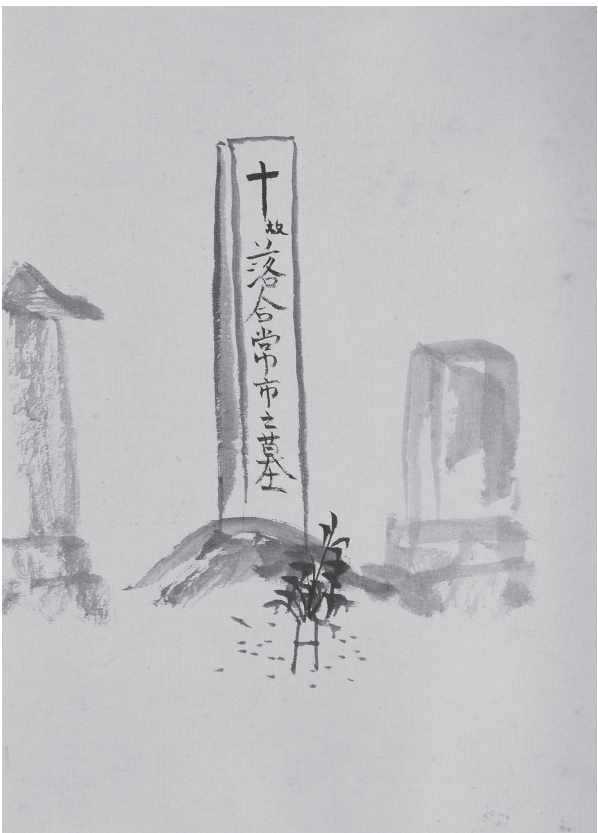 故落合常市之墓